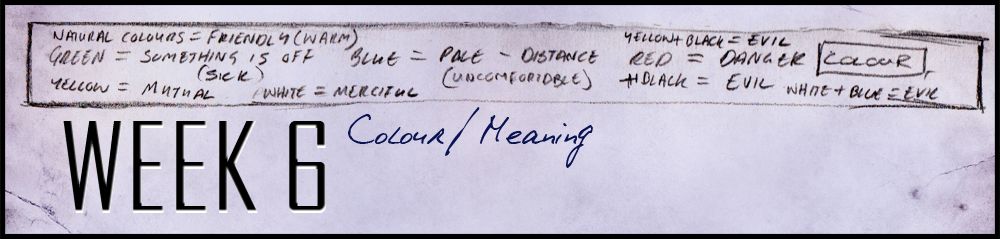 NATURAL COLOURS = FRIENDLY (WARM) YELLOW + BLACK = EVIL
GREEN = SOMETHING IS OFF BLUE = POLE - DISTANCE RED = DANGER COLOUR
(SICK) (UNCOMFORTABLE) + BLACK = EVIL
YELLOW = MUTUAL WHITE = MERCIFUL WHITE + BLUE = EVIL
WEEK 6 Colour / Meaning